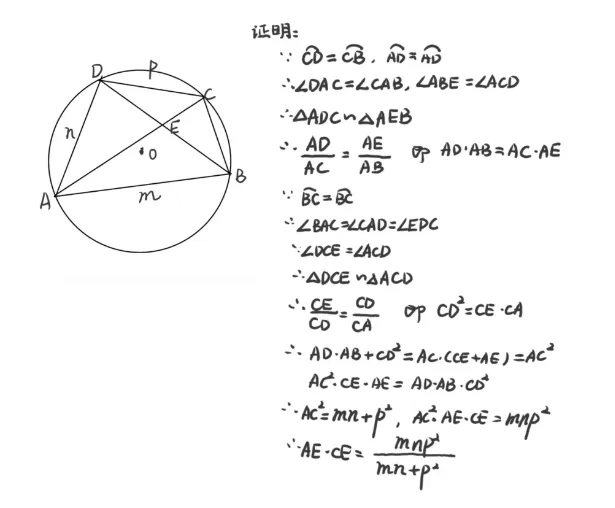 证明:
∵ C͡D=C͡B, A͡D=A͡D
∴∠DAC=∠CAB, ∠ABE=∠ACD
∴△ADC∽△AEB
∴ AD/AC = AE/AB 即 AD·AB=AC·AE
∵ B͡C=B͡C
∴∠BAC=∠CAD=∠EDC
∵∠DCE=∠ACD
∴△DCE∽△ACD
∴ CE/CD = CD/CA 即 CD²=CE·CA
∴ AD·AB+CD²=AC·(CE+AE)=AC²
AC²·CE·AE=AD·AB·CD²
∴AC²=mn+p², AC²·AE·CE=mnp²
∴AE·CE= mnp²/mn+p²
D
P
C
n
E
O
A
m
B